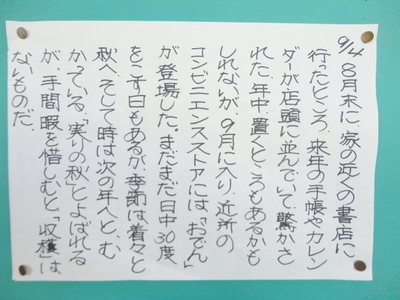 9/4 8月末に、家の近くの書店に
行ったところ、来年の手帳やカレン
ダーが店頭に並んでいて、驚かさ
れた。年中、置くところもあるかも
しれないが、9月に入り、近所の
コンビニエンスストアには「おでん」
が登場した。まだまだ日中30度
をこす日もあるが、季節は着々と
秋へ、そして時は次の年へと、む
かっている。「実りの秋」とよばれる
が、手間暇を惜しむと「収穫」は
ないものだ。